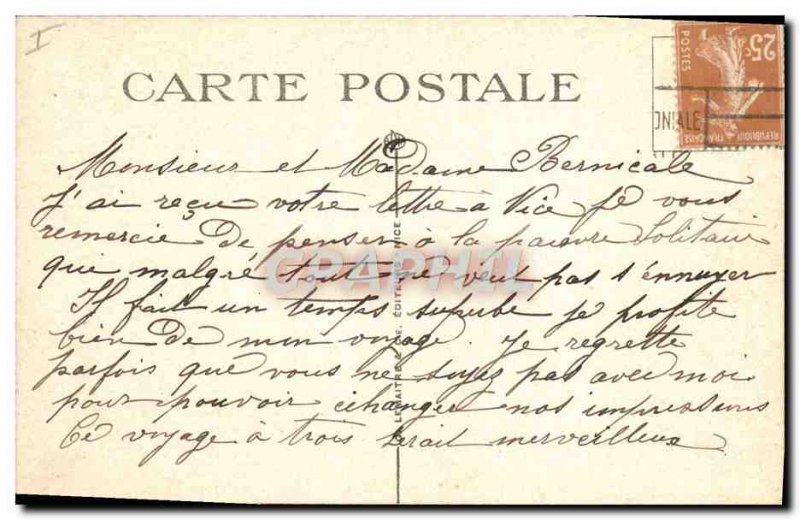 I
CARTE POSTALE
25c
POSTES
REPUBLIQUE FRANÇAISE
ONIALE
Monsieur et Madame Bernicale
J'ai reçu votre lettre a Nice je vous
remercie de penser à la pauvre Solitaire
que malgré tout ne veut pas s'ennuyer
Il fait un temps superbe je profite
bien de mon voyage. Je regrette
parfois que vous ne soyez pas avec moi
pour pouvoir échanger nos impressions
Ce voyage à trois serait merveilleux
LEMAITRE & CIE. EDITEURS NICE
CPAPHIL